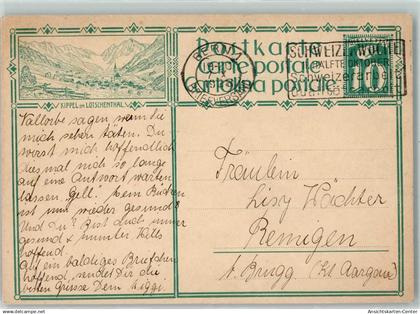 KIPPEL IM LÖTSCHENTHAL
Postkarte
Carte postale
Cartolina postale
BERN
BRIEFVERSAND
SCHWEIZERWOCHE
HÄLFTE OKTOBER
Schweizerarbeit
10
Vallorbe sagen wenn sie
mich sehen täten. Du
wirst mich hoffendlich
dies mal nich so lange
auf eine Antwort warten
lassen "Gell". Mein
ist nun wieder gesund?
Und Du? Bist auch immer
gesund & munter. Wills
hoffend.
Auf ein baldiges Briefchen
hoffend, sendet Dir die
besten Grüsse Dein
Fräulein
Lisy Wächter
Remigen
b. Brugg (Kt Aargau)
www.ansichtskarten-center.de